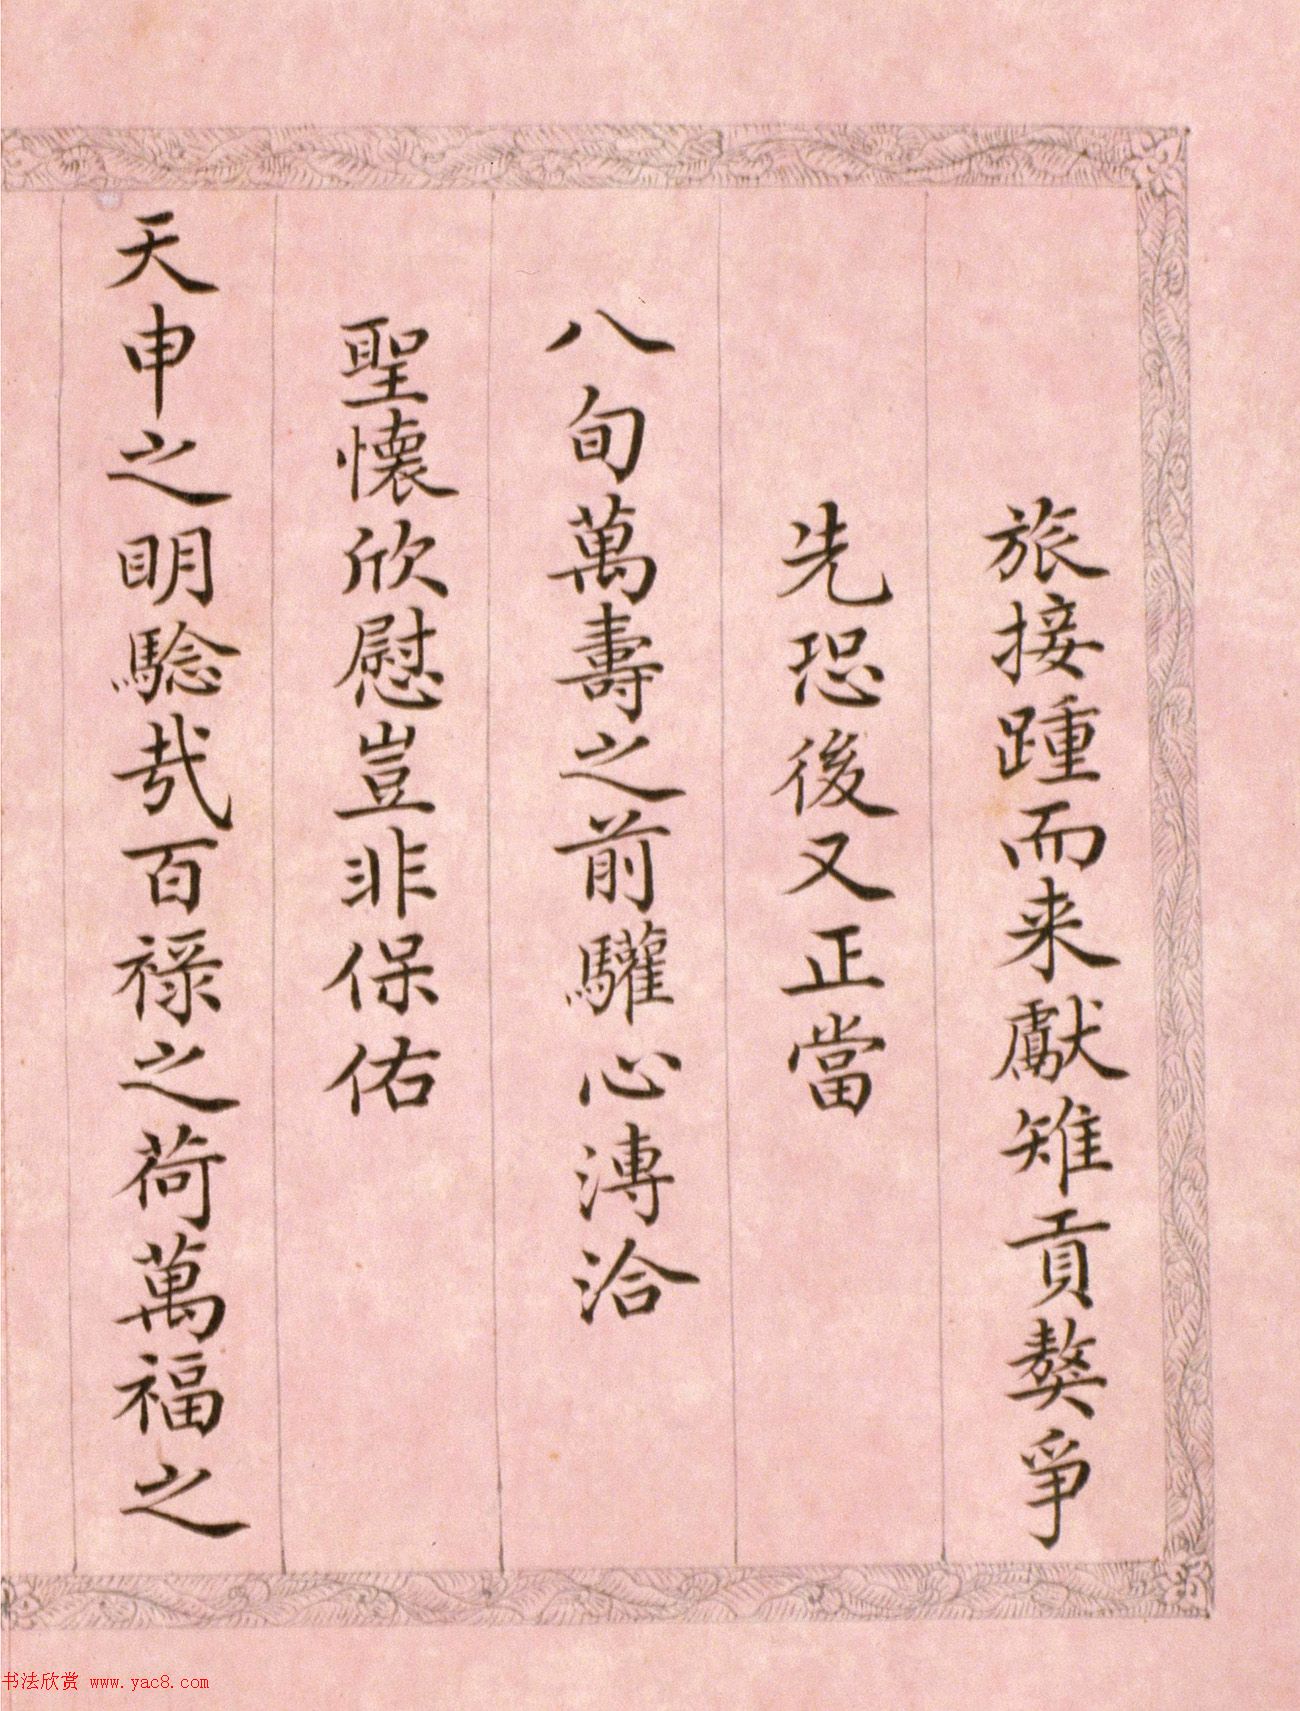 旅接踵而来獻雉貢獒爭
先恐後又正當
八旬萬壽之前驩心溥洽
聖懷欣慰豈非保佑
天申之明騐哉百祿之荷萬福之
书法欣赏 www.yac8.com